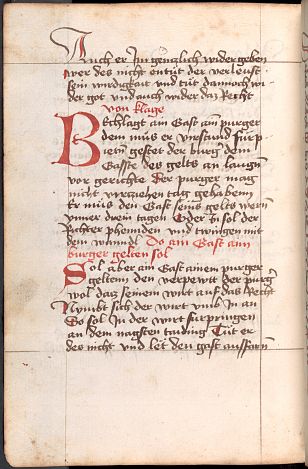 Auch er Im gentzlich wider geben
wer des nicht entüt der verleust
sein wirdigkait und tüt dannoch wi
der got und auch wider das Recht
von klage
Bechlagt ain Gast ain purger
dem müs er unstund fürp
ieten gestet der burger dem
Gaste des gelts an laugen
vor gerichte Der purger mag
nicht verziehen tag gehaben
Er müs den Gast seins gelts wern
inner zwein tagen Oder so sol der
Richter phennden und twingen mit
dem wanndl Do ain Gast ann
burger gelten sol
Sol aber ain Gast ainem purger
geltenn den verpewtt der purger
wol datz seinem wirt auf das Recht
Nymbt sich der wirt umb in an
So sol In der wirt fürpringen
an dem nagsten taiding Tüt er
des nicht und let den gast ausfarn